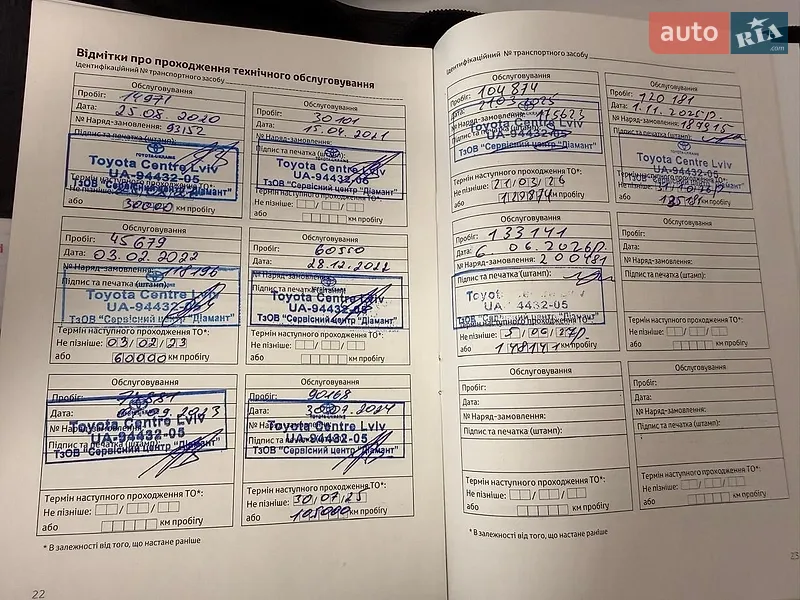 auto RIA .com
Відмітки про проходження технічного обслуговування
Ідентифікаційний № транспортного засобу
Обслуговування
Пробіг: 14971
Дата: 25.08 2020
№ Наряд-замовлення: 93152
Підпис та печатка (штамп):
Toyota Centre Lviv
UA-94432-05
ТзОВ "Сервісний центр "Діамант"
Термін наступного проходження ТО*:
або 30000 км пробігу
Обслуговування
Пробіг: 30101
Дата: 15.04.2021
№ Наряд-замовлення:
Підпис та печатка (штамп):
Toyota Centre Lviv
UA-94432-05
ТзОВ "Сервісний центр "Діамант"
Термін наступного проходження ТО*:
Не пізніше:
або км пробігу
Обслуговування
Пробіг: 45679
Дата: 03.02.2022
№ Наряд-замовлення: 118196
Підпис та печатка (штамп):
Toyota Centre Lviv
UA-94432-05
ТзОВ "Сервісний центр "Діамант"
Термін наступного проходження ТО*:
Не пізніше: 03/02/23
або 60000 км пробігу
Обслуговування
Пробіг: 60550
Дата: 28.12.2022
№ Наряд-замовлення:
Підпис та печатка (штамп):
Toyota Centre Lviv
UA-94432-05
ТзОВ "Сервісний центр "Діамант"
Термін наступного проходження ТО*:
Не пізніше:
або км пробігу
Обслуговування
Пробіг:
Дата: 09.2023
№ Наряд-замовлення:
Підпис та печатка (штамп):
Toyota Centre Lviv
UA-94432-05
ТзОВ "Сервісний центр "Діамант"
Термін наступного проходження ТО*:
Не пізніше:
або км пробігу
Обслуговування
Пробіг: 90168
Дата: 30.09.2024
№ Наряд-замовлення:
Підпис та печатка (штамп):
Toyota Centre Lviv
UA-94432-05
ТзОВ "Сервісний центр "Діамант"
Термін наступного проходження ТО*:
Не пізніше: 30/07/25
або 105000 км пробігу
* В залежності від того, що настане раніше
22
Ідентифікаційний № транспортного засобу
Обслуговування
Пробіг: 104874
Дата: 2103 2025
№ Наряд-замовлення: 175623
Toyota Centre Lviv
UA-94432-05
ТзОВ "Сервісний центр "Діамант"
Термін наступного проходження ТО*:
Не пізніше: 21/03/26
або 119874 км пробігу
Обслуговування
Пробіг: 120181
Дата: 1.11.2025р.
№ Наряд-замовлення: 189915
Підпис та печатка (штамп):
Toyota Centre Lviv
UA-94432-05
ТзОВ "Сервісний центр "Діамант"
Не пізніше:
або 135181 км пробігу
Обслуговування
Пробіг: 133141
Дата: 6 06.2026р.
№ Наряд-замовлення: 200481
Підпис та печатка (штамп):
Toyota Centre Lviv
UA 4432-05
ТзОВ "Сервісний центр "Діамант"
Термін наступного проходження ТО*:
Не пізніше: 5/06/27р.
або 148141 км пробігу
Обслуговування
Пробіг:
Дата:
№ Наряд-замовлення:
Підпис та печатка (штамп):
Термін наступного проходження ТО*:
Не пізніше:
або км пробігу
Обслуговування
Пробіг:
Дата:
№ Наряд-замовлення:
Підпис та печатка (штамп):
Термін наступного проходження ТО*:
Не пізніше:
або км пробігу
Обслуговування
Пробіг:
Дата:
№ Наряд-замовлення:
Підпис та печатка (штамп):
Термін наступного проходження ТО*:
Не пізніше:
або км пробігу
* В залежності від того, що настане раніше
23